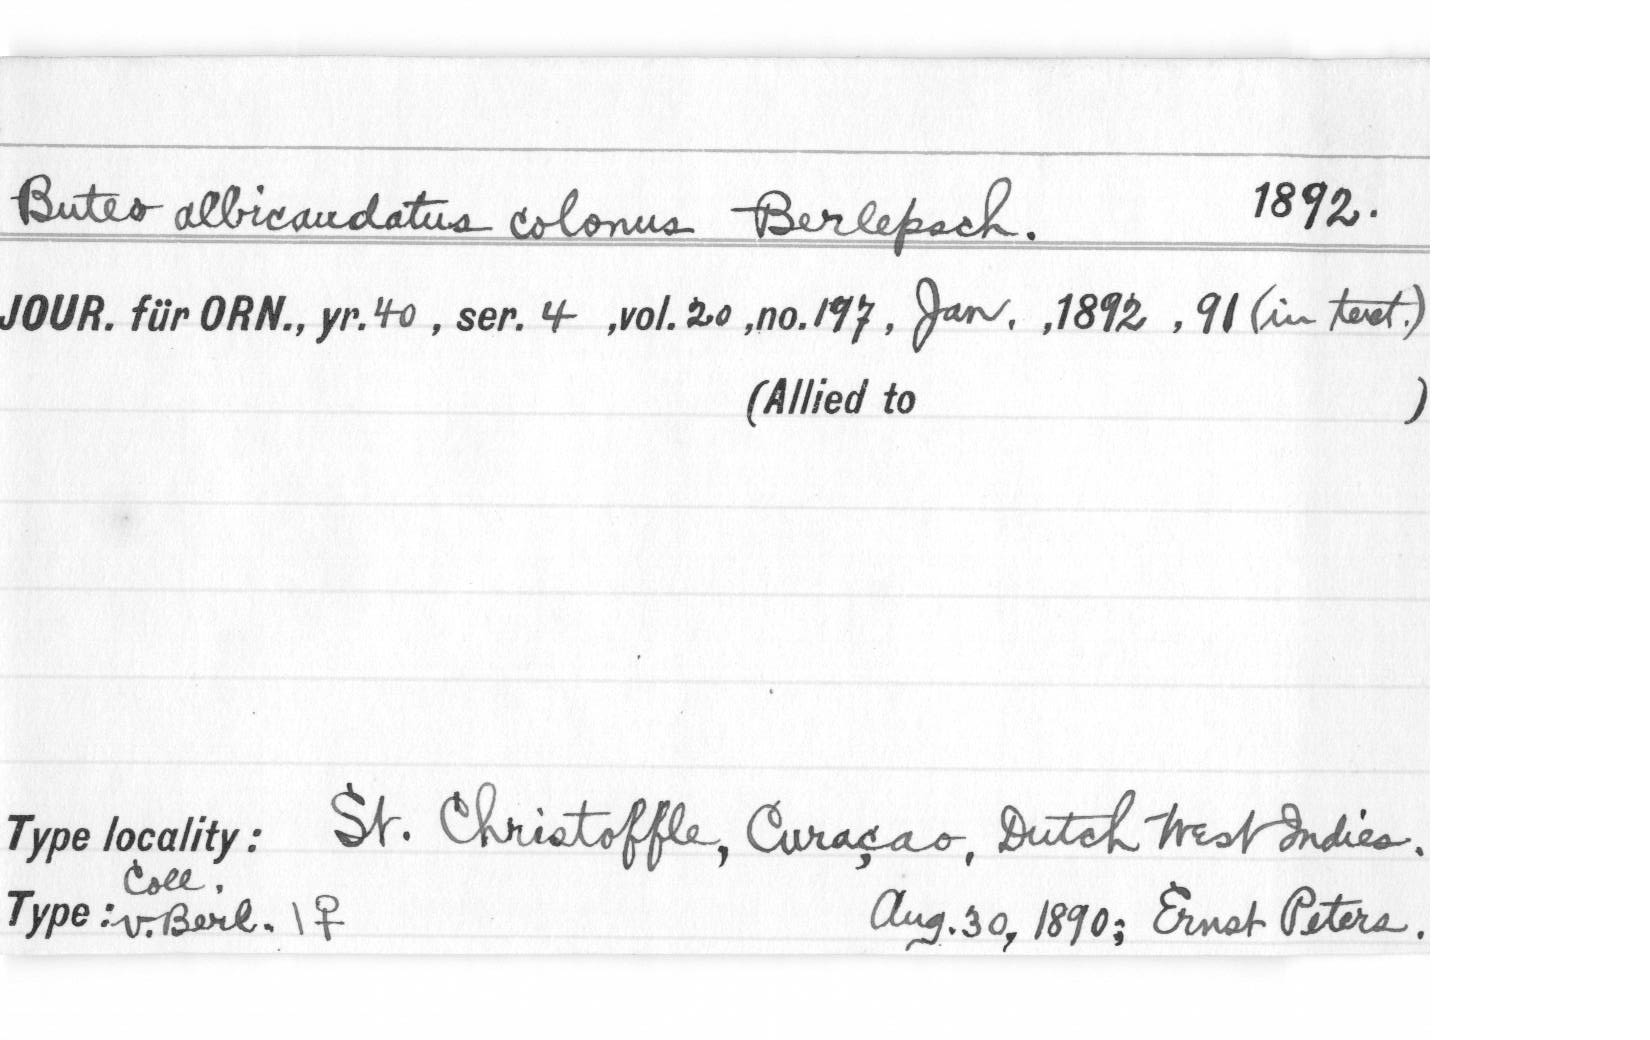 Buteo albicaudatus colonus Berlepsch. 1892.
JOUR. für ORN., yr. 40, ser. 4, vol. 20, no. 197, Jan., 1892, 91 (in text.)
(Allied to )
Type locality: St. Christoffle, Curaçao, Dutch West Indies.
Coll.
Type: v. Berl. 1 ♀ Aug. 30, 1890; Ernst Peters.